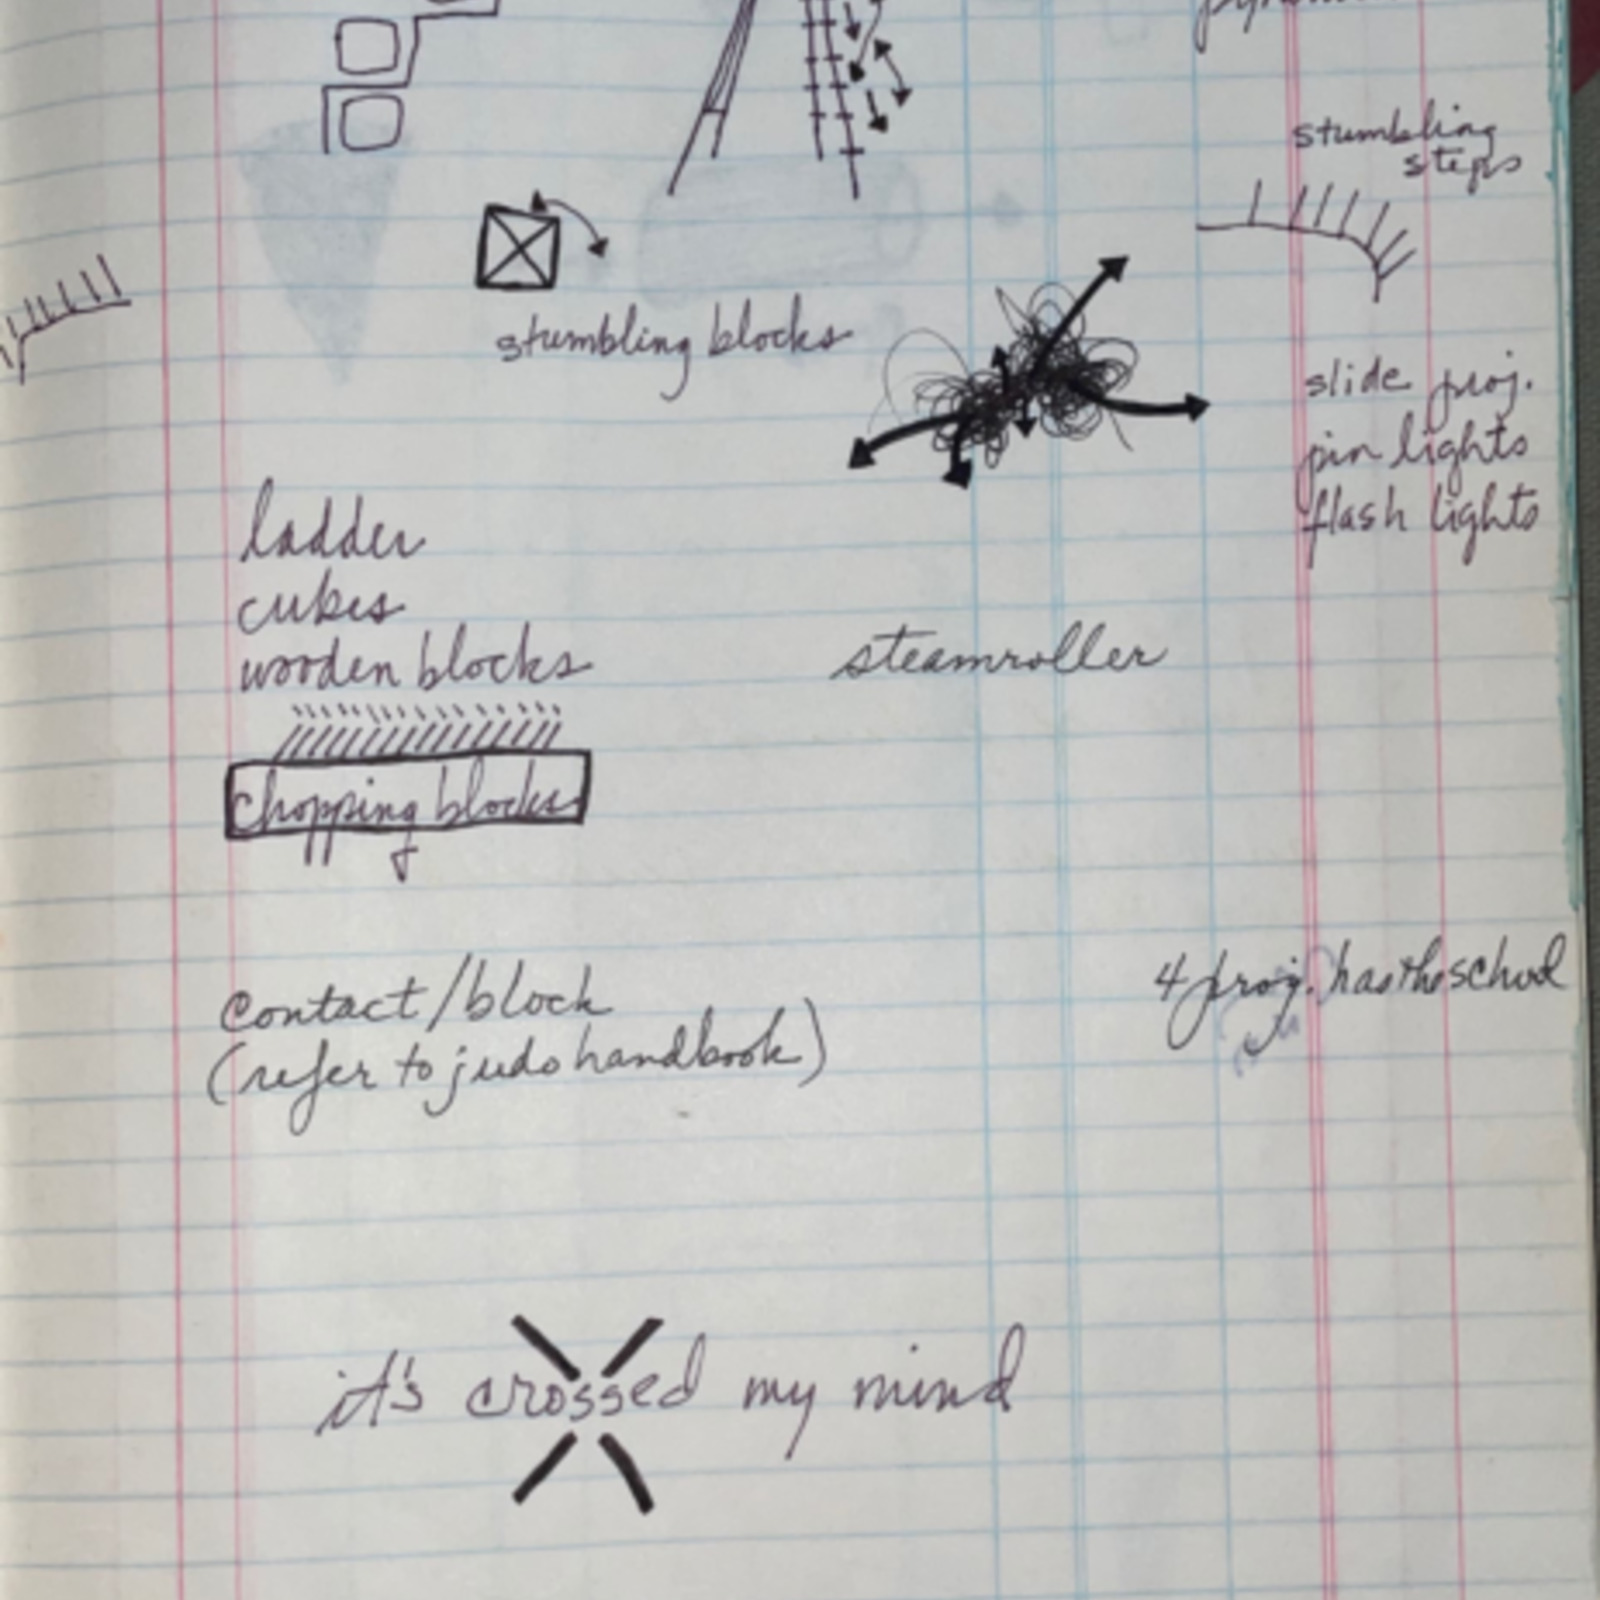 stumbling
steps
stumbling blocks
slide proj.
pin lights
flash lights
ladder
cubes
wooden blocks
steamroller
chopping blocks
contact/block
(refer to judo handbook)
4 proj. has the school
it's crossed my mind